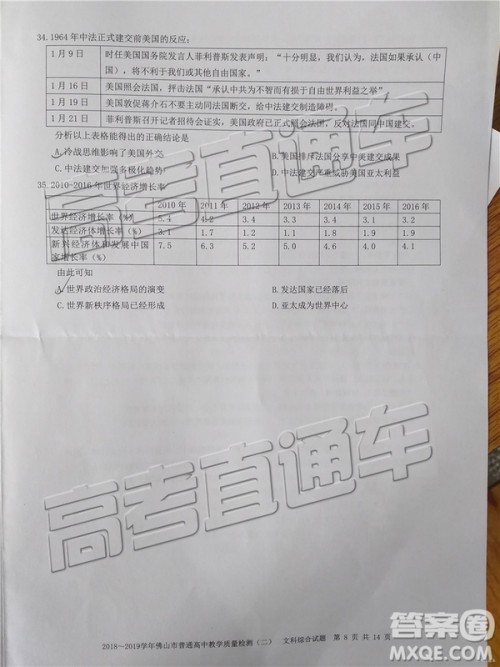 34.1964年中法正式建交前美国的反应：
1月9日 时任美国国务院发言人菲利普斯发表声明：“十分明显，我们认为，法国如果承认（中
国），将不利于我们或其他自由国家。”
1月16日 美国照会法国，抨击法国“承认中共为不智而有损于自由世界利益之举”
1月19日 美国敦促蒋介石不要主动同法国断交，给中法建交制造障碍。
1月21日 菲利普斯召开记者招待会证实，美国政府已正式照会法国，反对法国同中国建交。
分析以上表格能得出的正确结论是
A.冷战思维影响了美国外交 B.美国排斥法国分享中美建交成果
C.中法建交加强多极化趋势 D.中法建交严重威胁美国亚太利益
35.2010-2016年世界经济增长率
2010年 2011年 2012年 2013年 2014年 2015年 2016年
世界经济增长率（%） 5.4 4.2 3.4 3.3 3.4 3.2 3.1
发达经济体增长率（%） 3.1 1.7 1.2 1.1 1.8 1.9 1.9
新兴经济体和发展中国 7.5 6.3 5.2 5.0 4.6 4.0 4.1
家增长率（%）
由此可知
A.世界政治经济格局的演变 B.发达国家已经落后
C.世界新秩序格局已经形成 D.亚太成为世界中心
高考直通车
高考直通车
2018～2019学年佛山市普通高中教学质量检测（二） 文科综合试题 第8页 共14页
答案圈
MXQE.COM